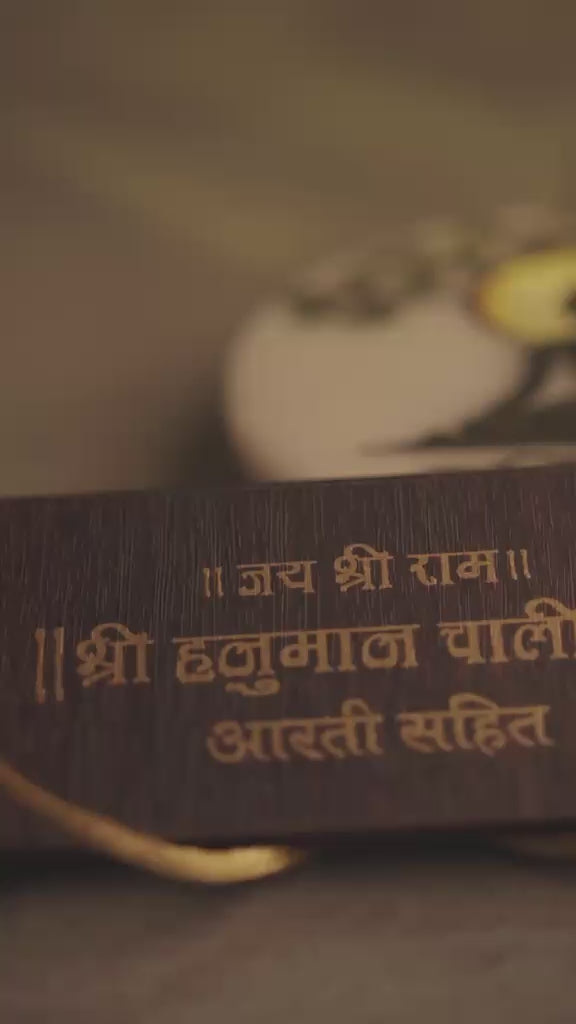 ॥ जय श्री राम ॥
॥ श्री हनुमान चाली
आरती सहित